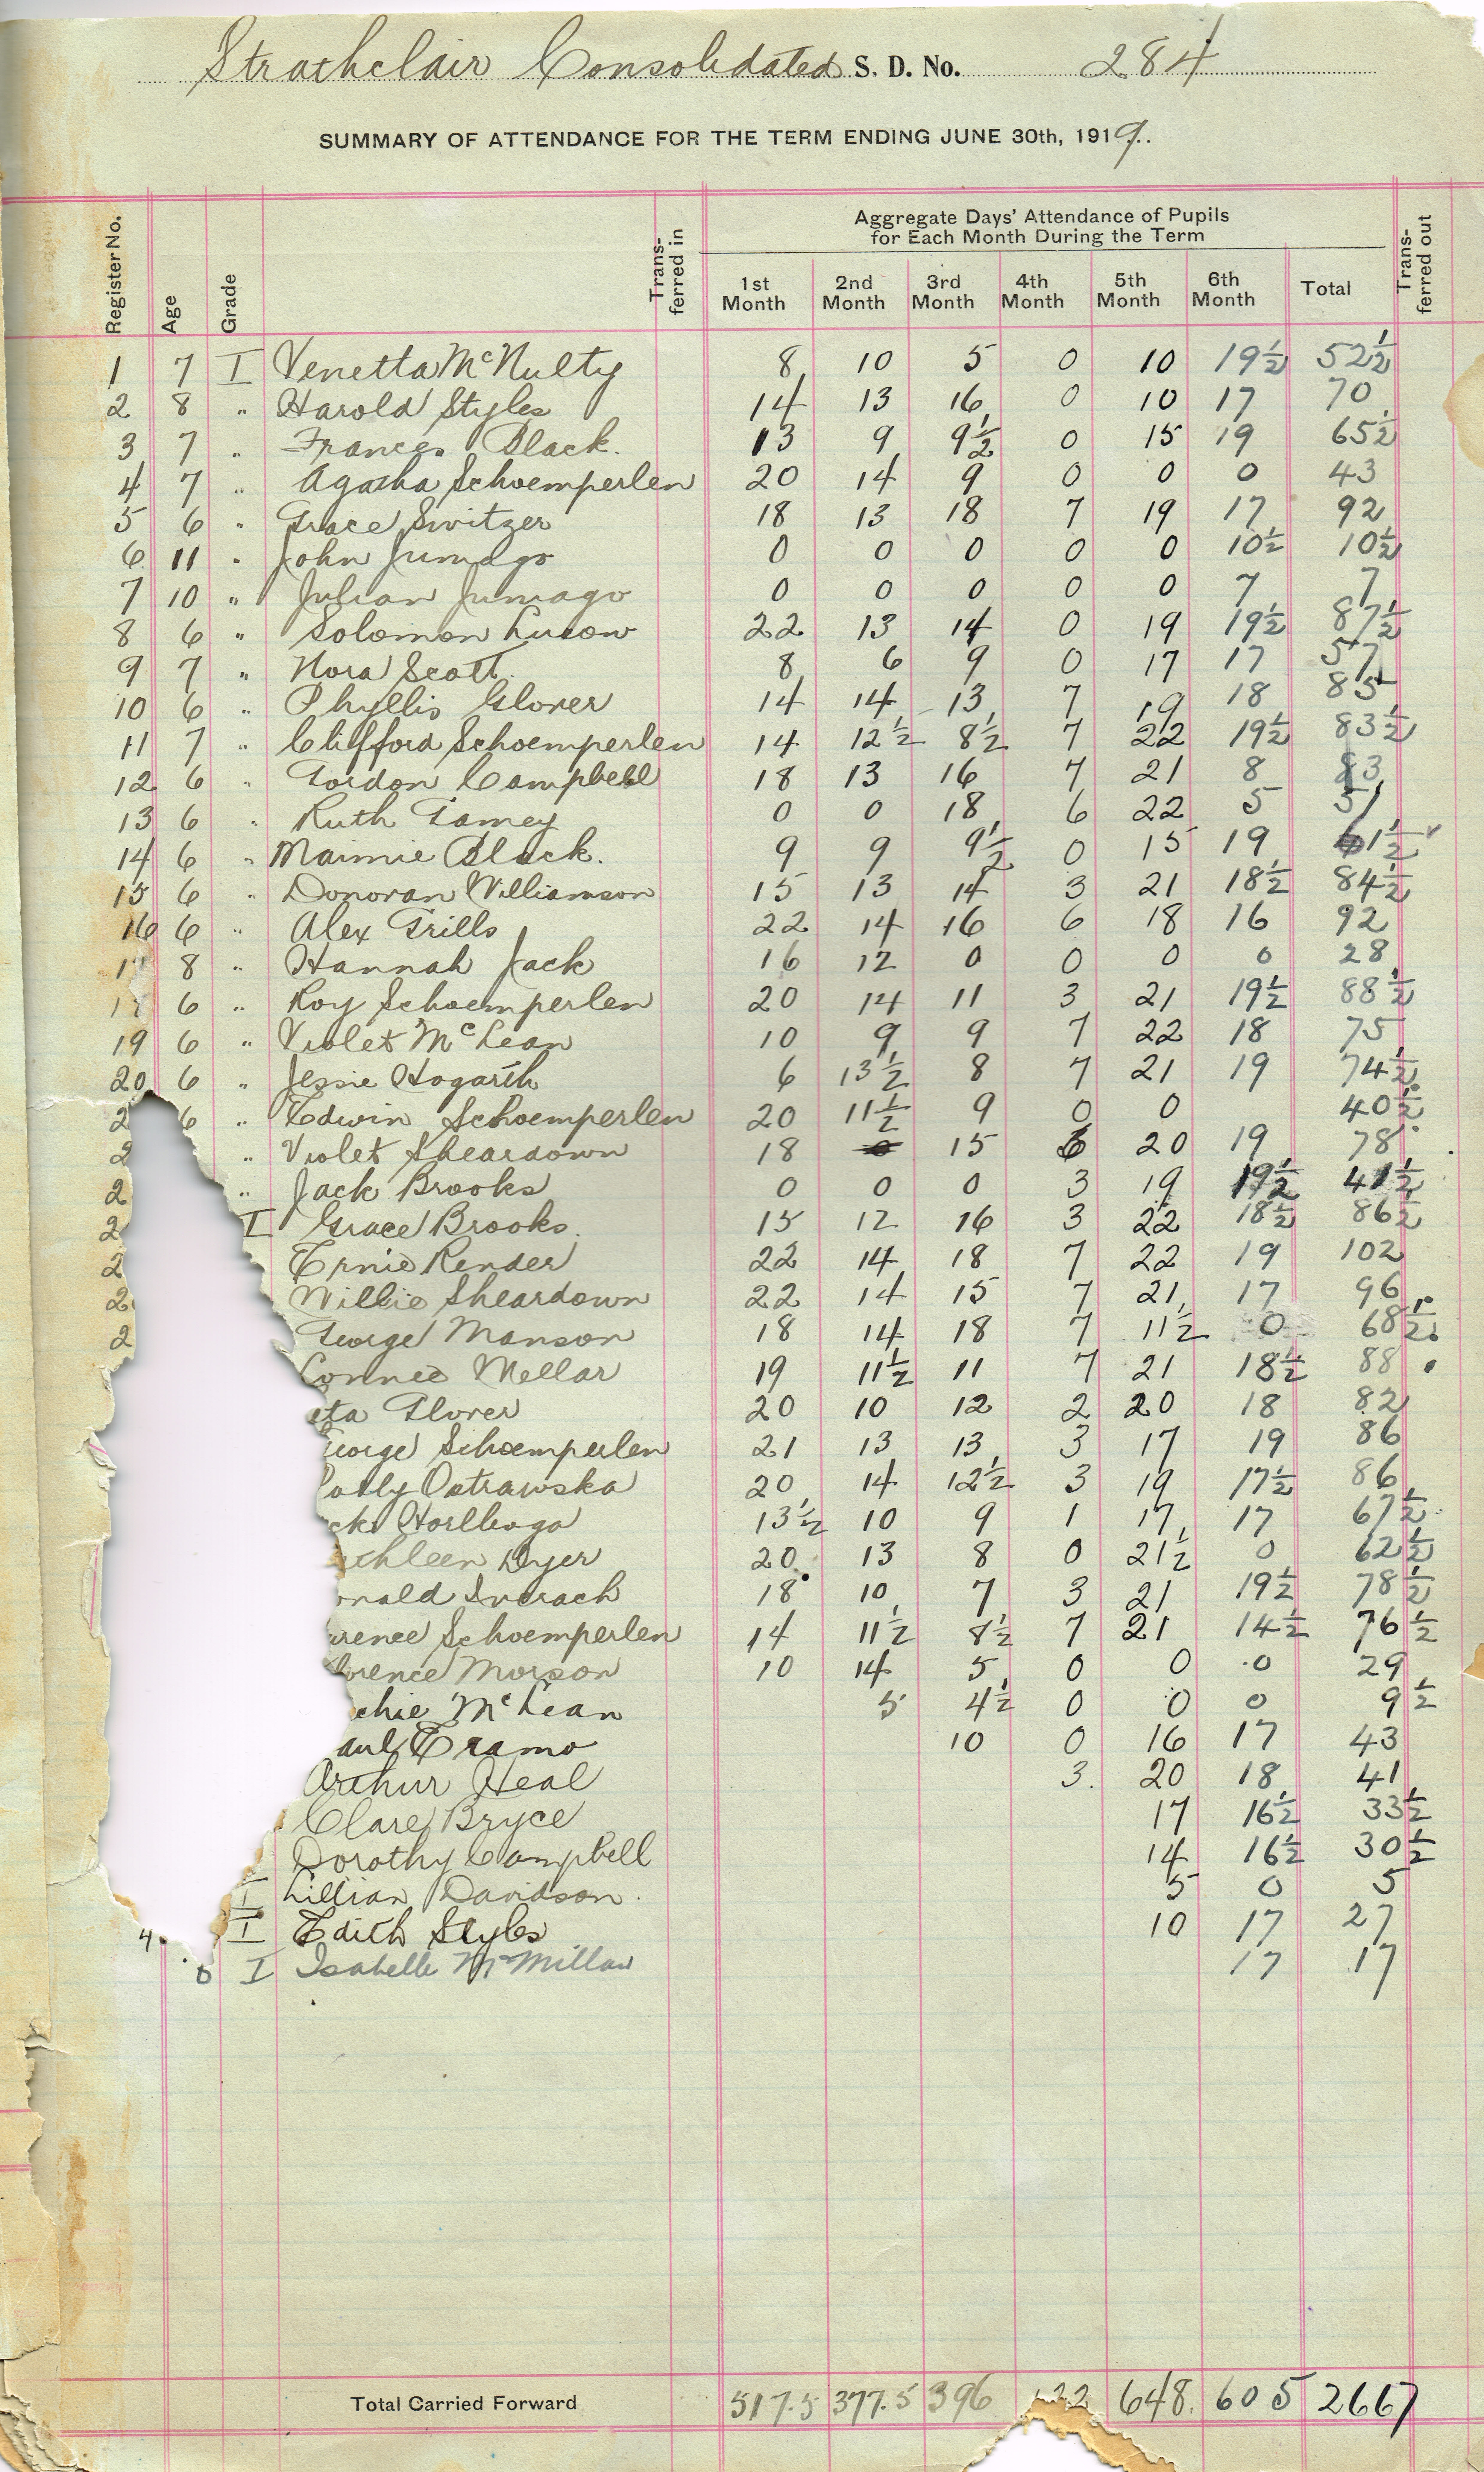 Strathclair Consolidated S. D. No. 284
SUMMARY OF ATTENDANCE FOR THE TERM ENDING JUNE 30th, 1919.
Register No. Age Grade Trans-ferred in Aggregate Days' Attendance of Pupils for Each Month During the Term Trans-ferred out
1st Month 2nd Month 3rd Month 4th Month 5th Month 6th Month Total
1 7 I Venetta McNulty 8 10 5 0 10 19½ 52½
2 8 " Harold Styles 14 13 16 0 10 17 70
3 7 " Frances Black. 13 9 9½ 0 15 19 65½
4 7 " Agatha Schoemperlen 20 14 9 0 0 0 43
5 6 " Grace Switzer 18 13 18 7 19 17 92
6 11 " John 0 0 0 0 0 10½ 10½
7 10 " Julian 0 0 0 0 0 7 7
8 6 " Solomon 22 13 14 0 19 19½ 87½
9 7 " Nora Scott. 8 6 9 0 17 17 57
10 6 " Phyllis Glover 14 14 13 7 19 18 85
11 7 " Clifford Schoemperlen 14 12½ 8½ 7 22 19½ 83½
12 6 " Gordon Campbell 18 13 16 7 21 8 83
13 6 " Ruth 0 0 18 6 22 5 51
14 6 " Maimie Black. 9 9 9½ 0 15 19 61½
15 6 " Donovan Williamson 15 13 14 3 21 18½ 84½
16 6 " Alex Grills 22 14 16 6 18 16 92
1 8 " Hannah Jack 16 12 0 0 0 0 28
1 6 " Roy Schoemperlen 20 14 11 3 21 19½ 88½
19 6 " Violet McLean 10 9 9 7 22 18 75
20 6 " Jessie Hogarth 6 13½ 8 7 21 19 74½
2 6 " Edwin Schoemperlen 20 11½ 9 0 0 40½
2 " Violet Sheardown 18 0 15 6 20 19 78
2 " Jack Brooks 0 0 0 3 19 19½ 41½
2 I Grace Brooks. 15 12 16 3 22 18½ 86½
2 Ernie Render 22 14 18 7 22 19 102
2 Willie Sheardown 22 14 15 7 21 17 96
2 George Manson 18 14 18 7 11½ 0 68½
Connee Mellar 19 11½ 11 7 21 18½ 88
eta Glover 20 10 12 2 20 18 82
eorge Schoemperlen 21 13 13 3 17 19 86
olly Ostrawska 20 14 12½ 3 19 17½ 86
ck 13½ 10 9 1 17 17 67½
thleen Dyer 20 13 8 0 21½ 0 62½
onald Inverach 18 10 7 3 21 19½ 78½
rence Schoemperlen 14 11½ 8½ 7 21 14½ 76½
orence Morson 10 14 5 0 0 0 29
chie McLean 5 4½ 0 0 0 9½
aul Eramo 10 0 16 17 43
Arthur Heal 3. 20 18 41
Clare Bryce 17 16½ 33½
Dorothy Campbell 14 16½ 30½
I Lillian Davidson. 5 0 5
4 I Edith Styles 10 17 27
I Isabelle McMillan 17 17
Total Carried Forward 517.5 377.5 396 122 648. 605 2667